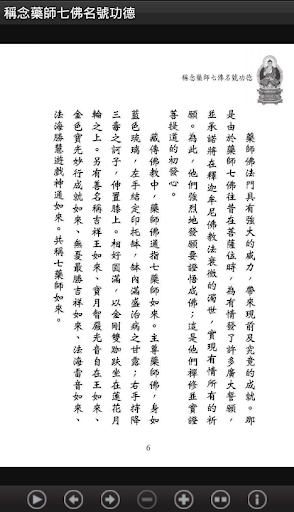 稱念藥師七佛名號功德
稱念藥師七佛名號功德
藥師佛法門具有強大的威力，帶來現前及究竟的成就。那
是由於藥師七佛往昔在菩薩位時，為有情發了許多廣大誓願，
並承諾將在釋迦牟尼佛教法衰微的濁世，實現有情所有的祈
願。為此，他們強烈地發願要證悟成佛；這是他們禪修並實證
菩提道的初發心。
藏傳佛教中，藥師佛通指七藥師如來。主尊藥師佛，身如
藍色琉璃，左手結定印托缽，缽內滿盛治病之甘露；右手持除
三毒之訶子，伸置膝上。相好圓滿，以金剛雙跏趺坐在蓮花月
輪之上。另有善名稱吉祥王如來、寶月智嚴光音自在王如來、
金色寶光妙行成就如來、無憂最勝吉祥如來、法海雷音如來、
法海勝慧遊戲神通如來。共稱七藥師如來。
6